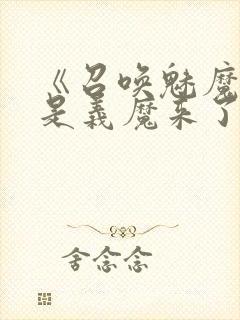 《召唤魅魔
是义魔来了
舍念念